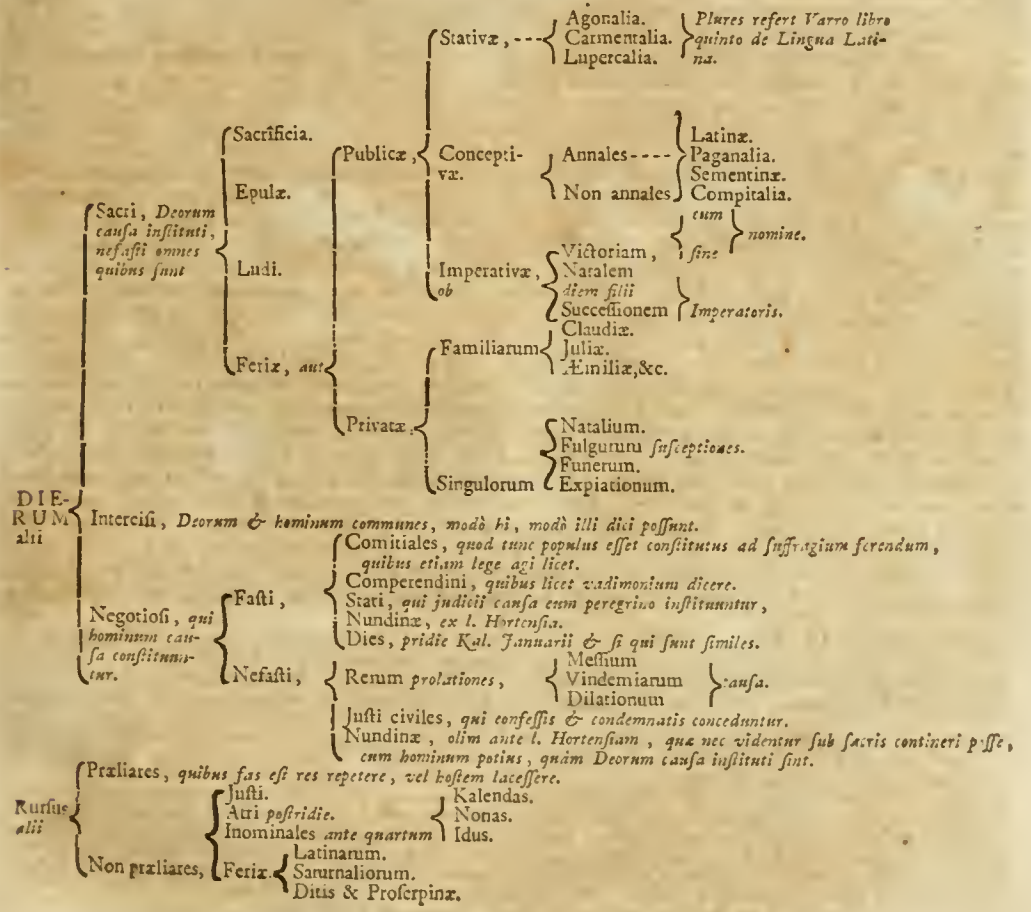 Stativæ, ---
Agonalia.
Carmentalia.
Lupercalia.
Plures refert Varro libro
quinto de Lingua Lati-
na.
Sacrificia.
Epulæ.
Ludi.
Feriæ, aut
Publicæ,
Concepti-
væ.
Annales----
Non annales
Latinæ.
Paganalia.
Sementinæ.
Compitalia.
Sacri, Deorum
cauſa inſtituti,
nefaſti omnes
quibus ſunt
Imperativæ,
ob
Victoriam,
cum
ſine
nomine.
Natalem
diem filii
Succeſſionem
Imperatoris.
Familiarum
Claudiæ.
Juliæ.
Æmiliæ,&c.
Privatæ,
Singulorum
Natalium.
Fulgurum ſuſceptiones.
Funerum.
Expiationum.
DIE-
RUM
alii
Interciſi, Deorum & hominum communes, modò hi, modò illi dici poſſunt.
Negotioſi, qui
hominum cau-
ſa conſtituun-
tur.
Faſti,
Comitiales, quod tunc populus eſſet conſtitutus ad ſuffragium ferendum,
quibus etiam lege agi licet.
Comperendini, quibus licet vadimonium dicere.
Stati, qui judicii cauſa cum peregrino inſtituuntur,
Nundinæ, ex l. Hortenſia.
Dies, pridie Kal. Januarii & ſi qui ſunt ſimiles.
Nefaſti,
Rerum prolationes,
Meſſium
Vindemiarum
Dilationum
cauſa.
Juſti civiles, qui confeſſis & condemnatis conceduntur.
Nundinæ, olim ante l. Hortenſiam, quæ nec videntur ſub ſacris contineri poſſe,
cum hominum potius, quàm Deorum cauſa inſtituti ſint.
Rurſus
alii
Præliares, quibus fas eſt res repetere, vel hoſtem laceſſere.
Non præliares,
Juſti.
Atri poſtridie.
Inominales ante quartum
Kalendas.
Nonas.
Idus.
Feriæ.
Latinarum.
Saturnaliorum.
Ditis & Proſerpinæ.